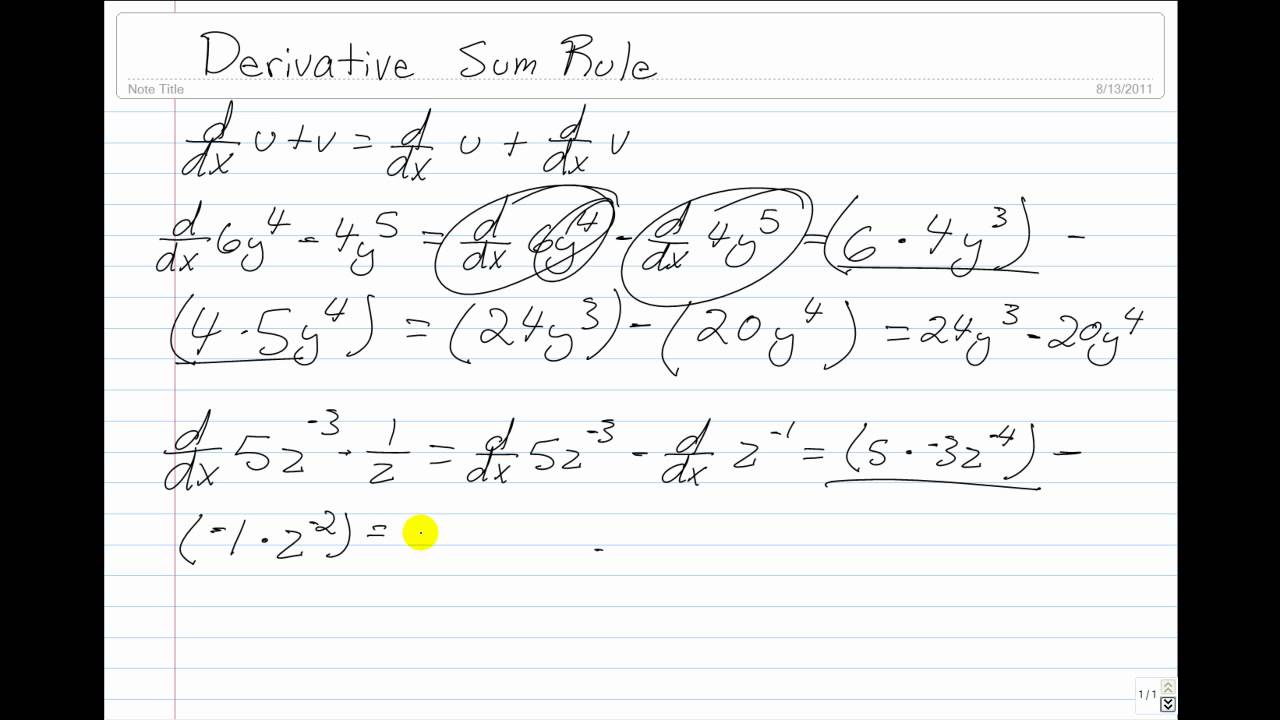 Derivative Sum Rule
Note Title 8/13/2011
d/dx u+v = d/dx u + d/dx v
d/dx 6y⁴ - 4y⁵ = d/dx 6y⁴ - d/dx 4y⁵ = (6 · 4y³) -
(4 · 5y⁴) = (24y³) - (20y⁴) = 24y³ - 20y⁴
d/dx 5z⁻³ - 1/z = d/dx 5z⁻³ - d/dx z⁻¹ = (5 · -3z⁻⁴) -
(-1 · z⁻²) =
1/1